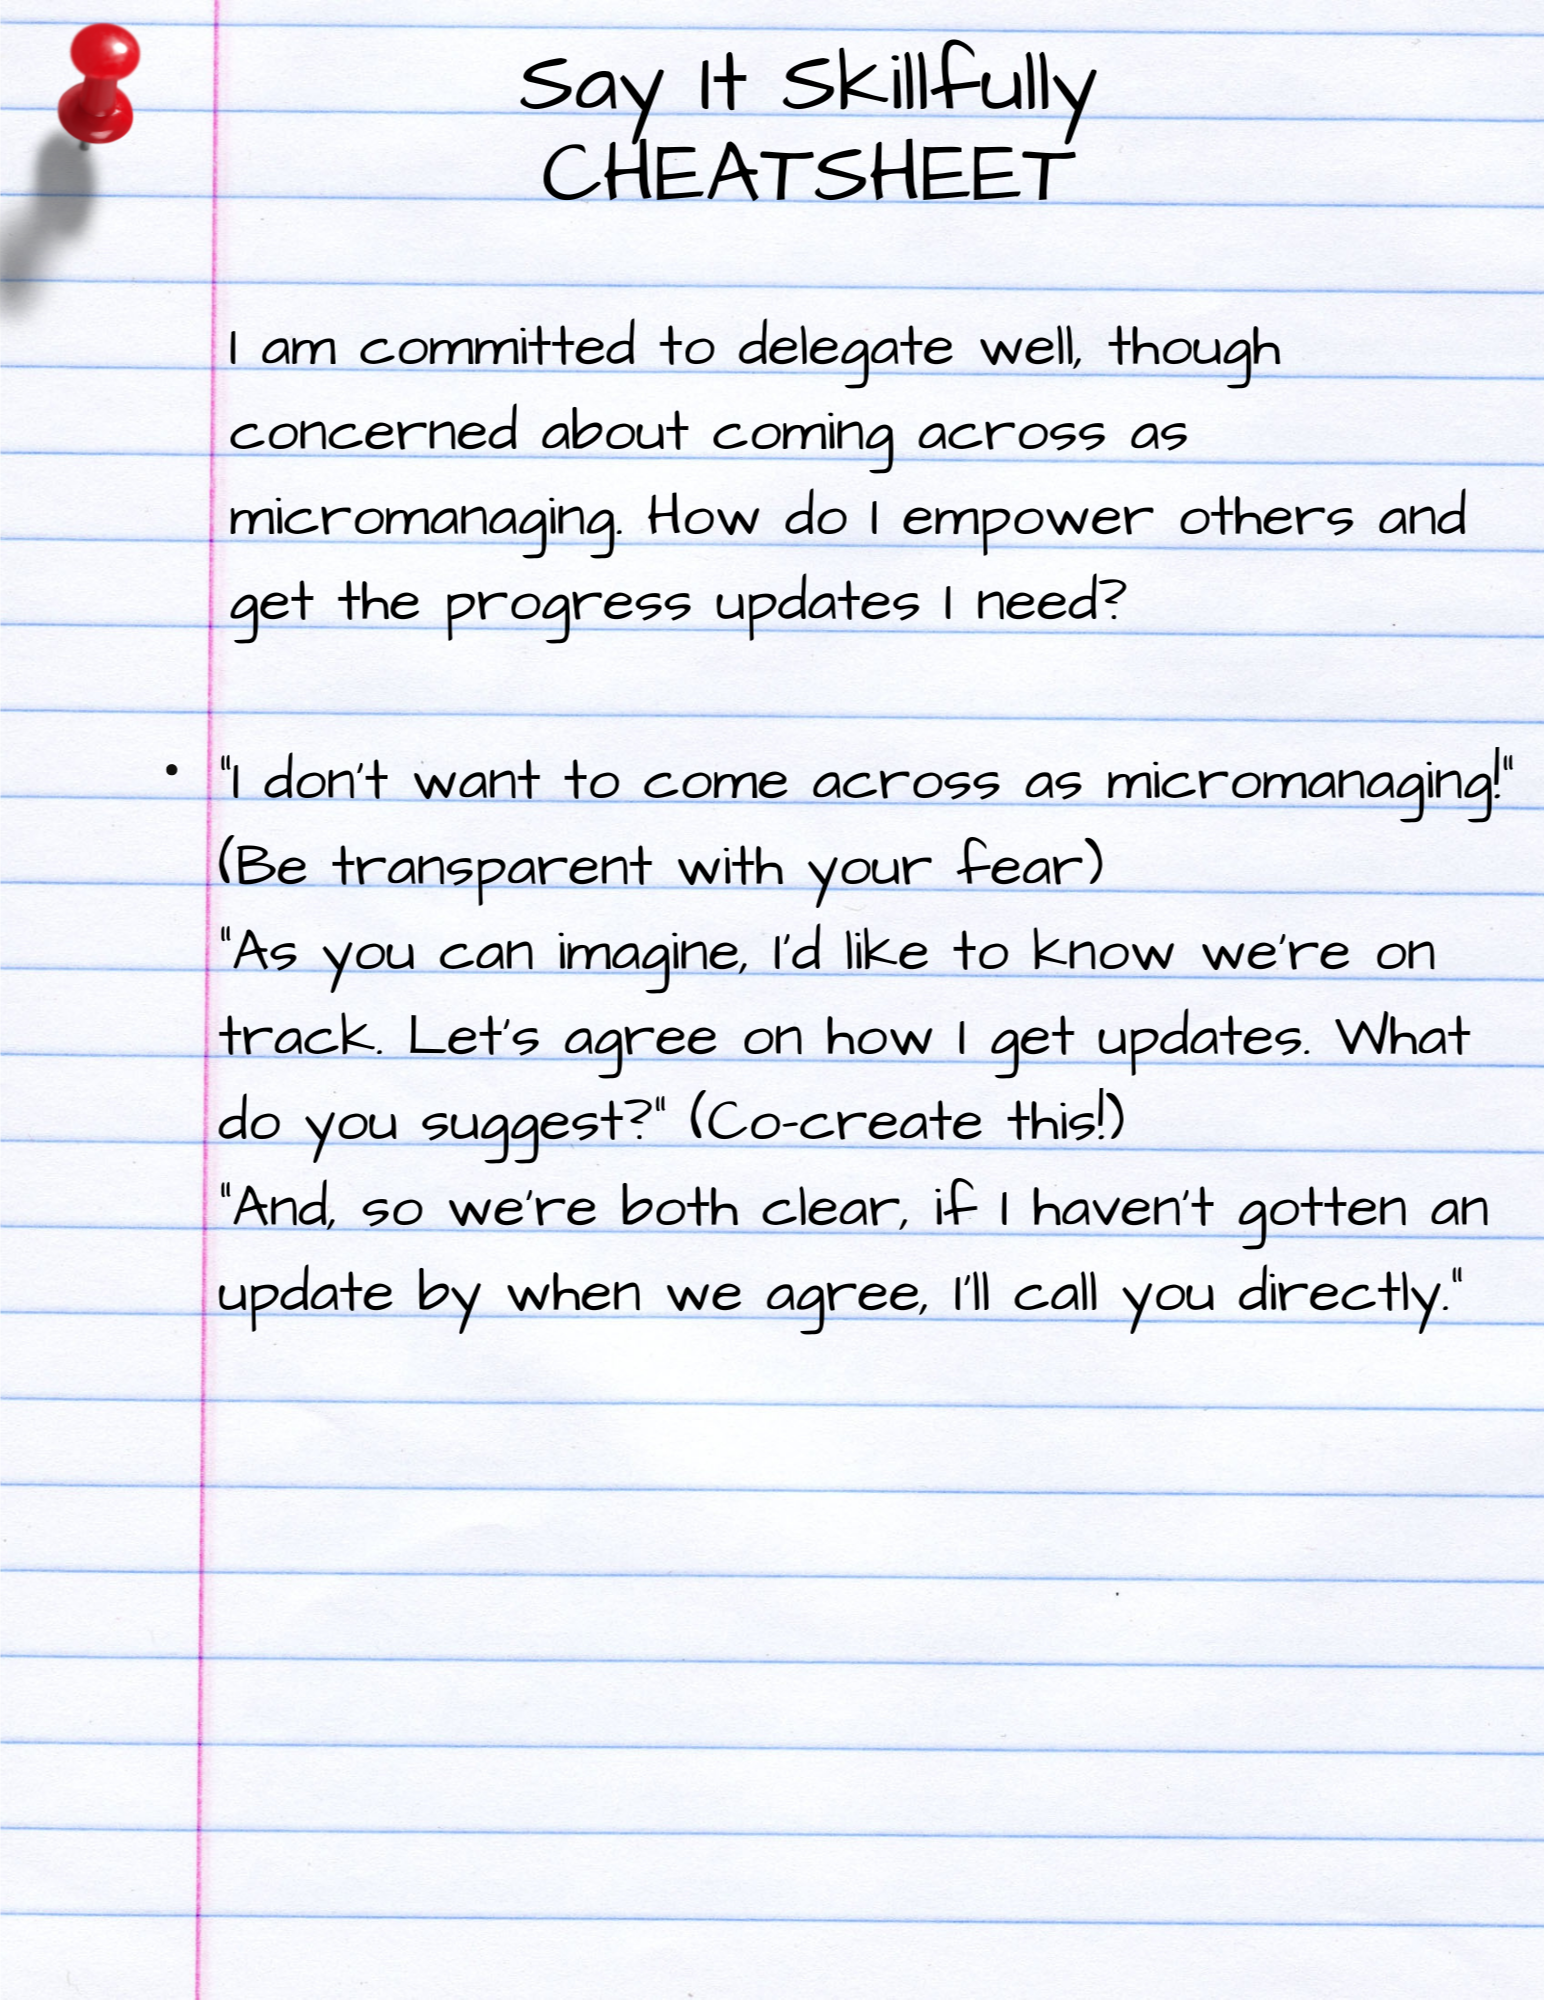 Say It Skillfully
CHEATSHEET
I am committed to delegate well, though
concerned about coming across as
micromanaging. How do I empower others and
get the progress updates I need?
• "I don't want to come across as micromanaging!"
(Be transparent with your fear)
"As you can imagine, I'd like to know we're on
track. Let's agree on how I get updates. What
do you suggest?" (Co-create this!)
"And, so we're both clear, if I haven't gotten an
update by when we agree, I'll call you directly."